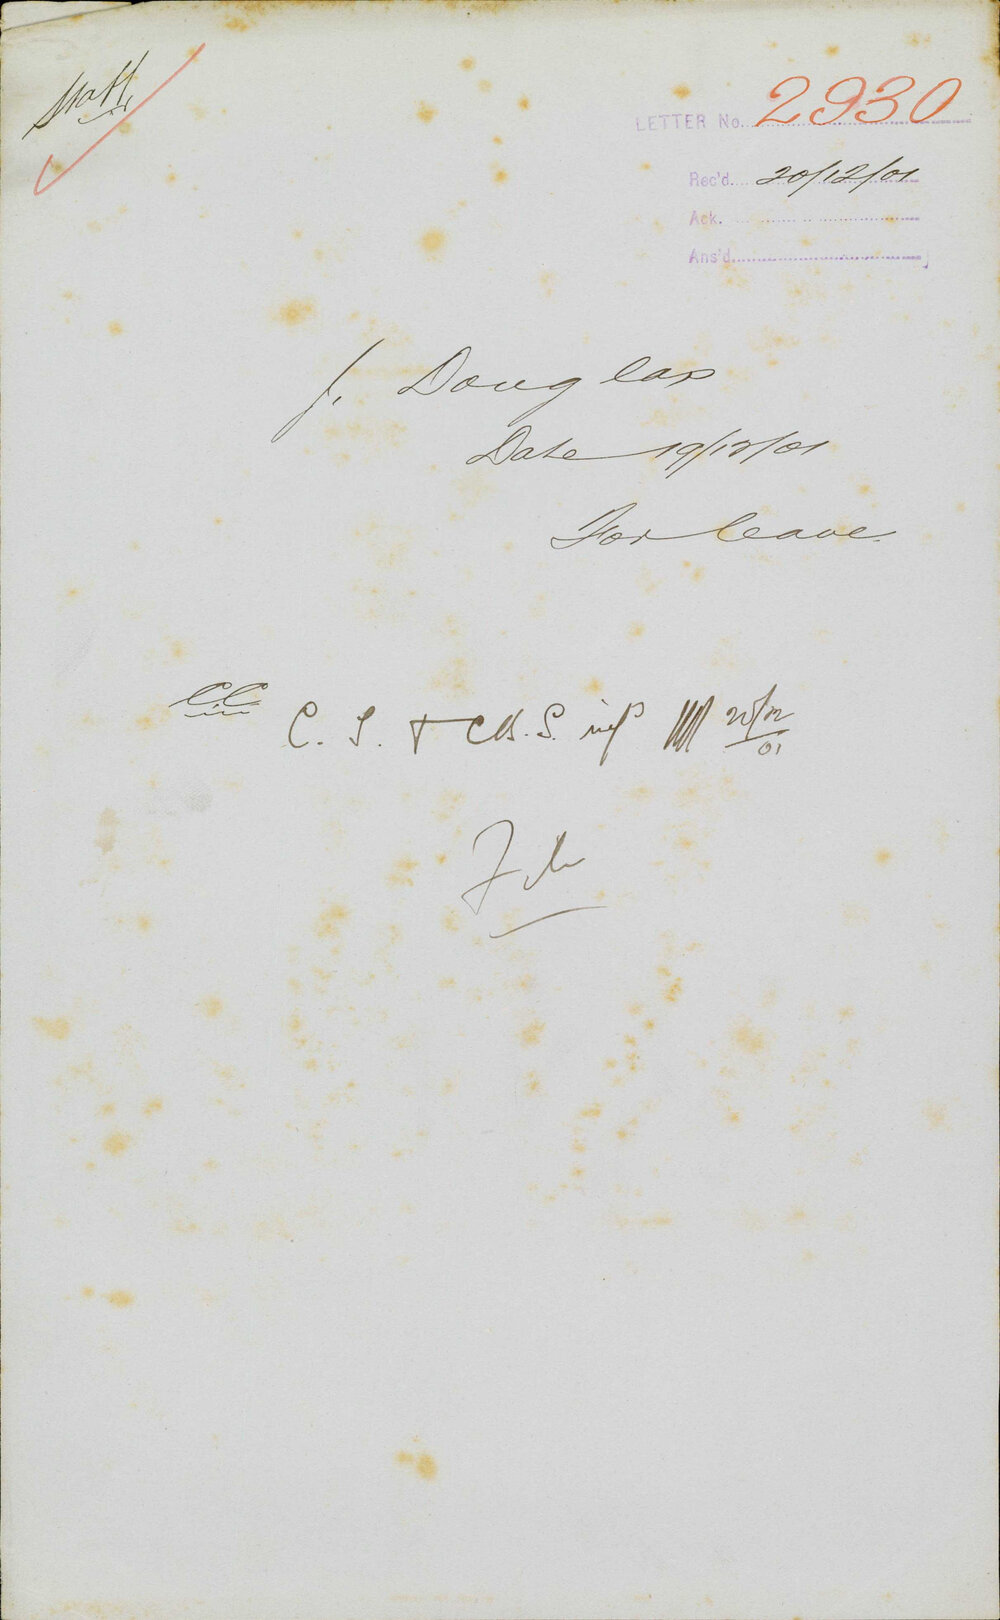 Staff
LETTER No. 2930
Rec'd. 20/12/01
Ack.
Ans'd.
J. Douglas
Date 19/12/01
For leave.
C.C.
C. S. + C.B.S. 20/12/01
File